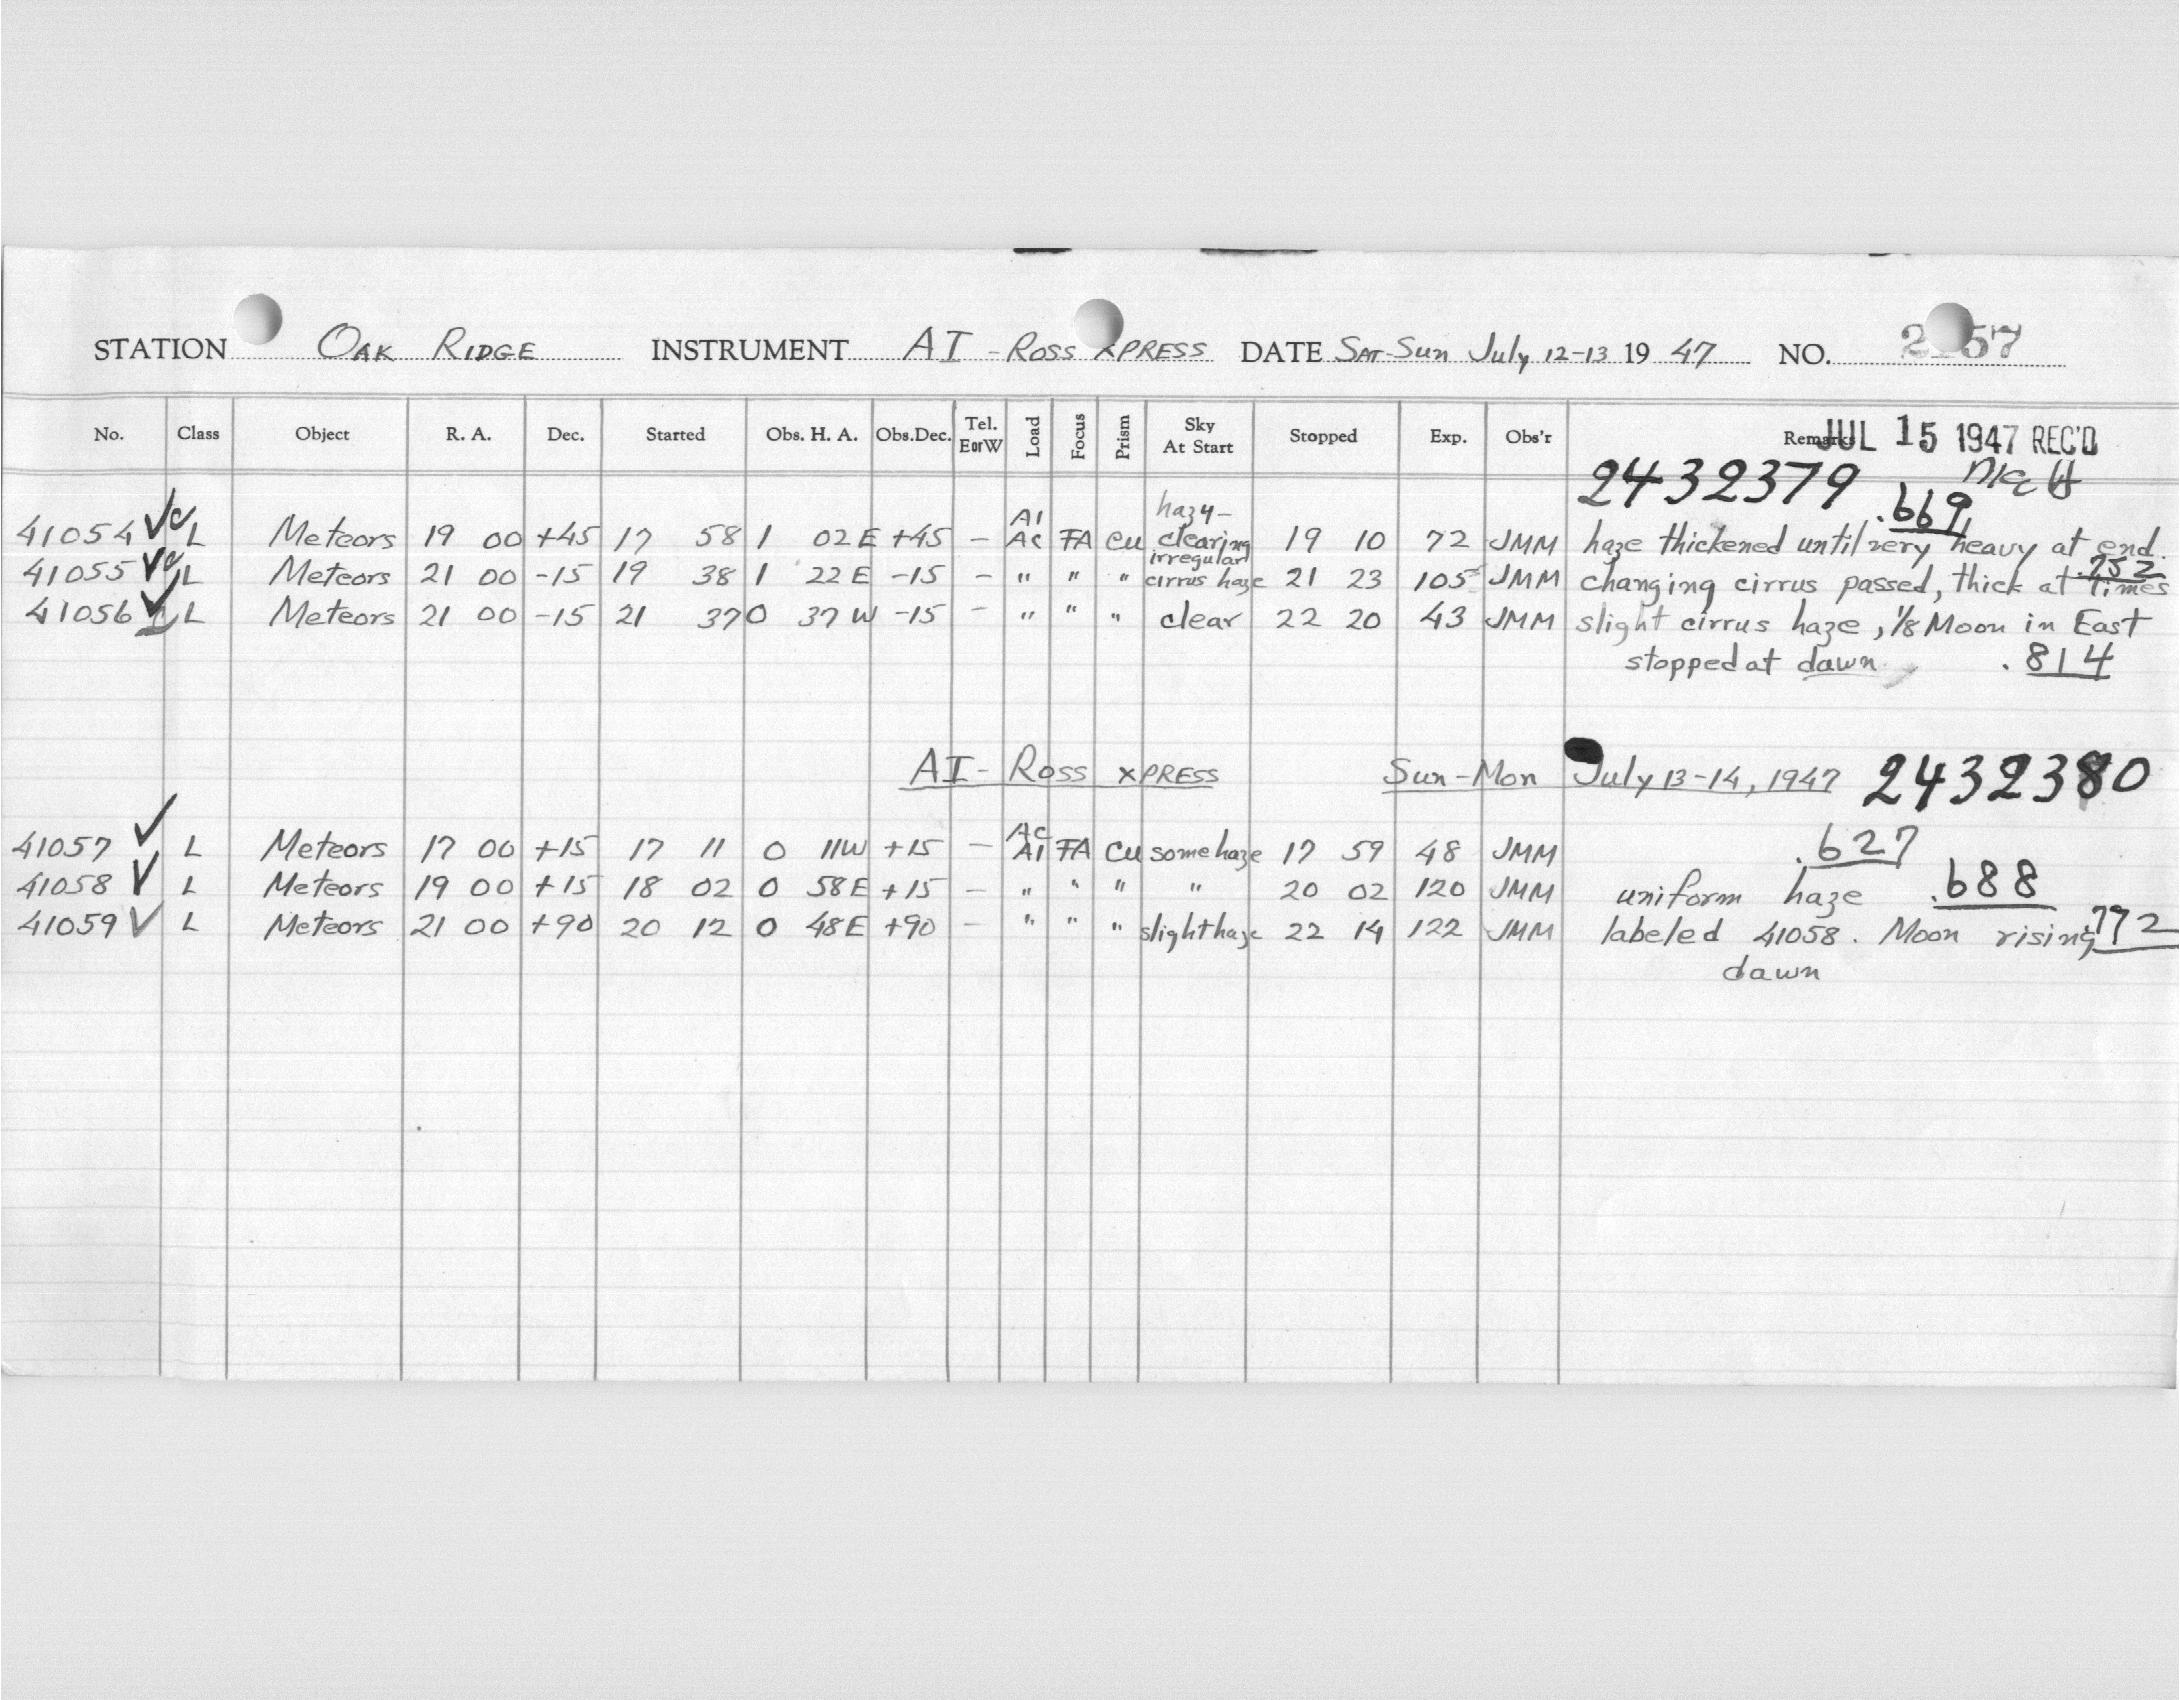 STATION OAK RIDGE INSTRUMENT AI - ROSS XPRESS DATE SAT-SUN July 12-13 19 47 NO. 57
No. Class Object R. A. Dec. Started Obs. H. A. Obs.Dec. Tel. E or W Load Focus Prism Sky At Start Stopped Exp. Obs'r Remarks
JUL 15 1947 REC'D
2432379
hazy-
.669
41054 ✓c L Meteors 19 00 +45 17 58 1 02 E +45 - AI AC FA CU clearing 19 10 72 JMM haze thickened until very heavy at end.
irregular
.752
41055 ✓c L Meteors 21 00 -15 19 38 1 22 E -15 - " " " cirrus haze 21 23 105 JMM changing cirrus passed, thick at times
41056 ✓ L Meteors 21 00 -15 21 37 0 37 W -15 - " " " clear 22 20 43 JMM slight cirrus haze, 1/8 Moon in East
stopped at dawn .814
AI - ROSS XPRESS Sun-Mon July 13-14, 1947 2432380
41057 ✓ L Meteors 17 00 +15 17 11 0 11W +15 - AC AI FA CU some haze 17 59 48 JMM .627
41058 ✓ L Meteors 19 00 +15 18 02 0 58E +15 - " " " " 20 02 120 JMM uniform haze .688
41059 ✓ L Meteors 21 00 +90 20 12 0 48E +90 - " " " slight haze 22 14 122 JMM labeled 41058. Moon rising, 772
dawn